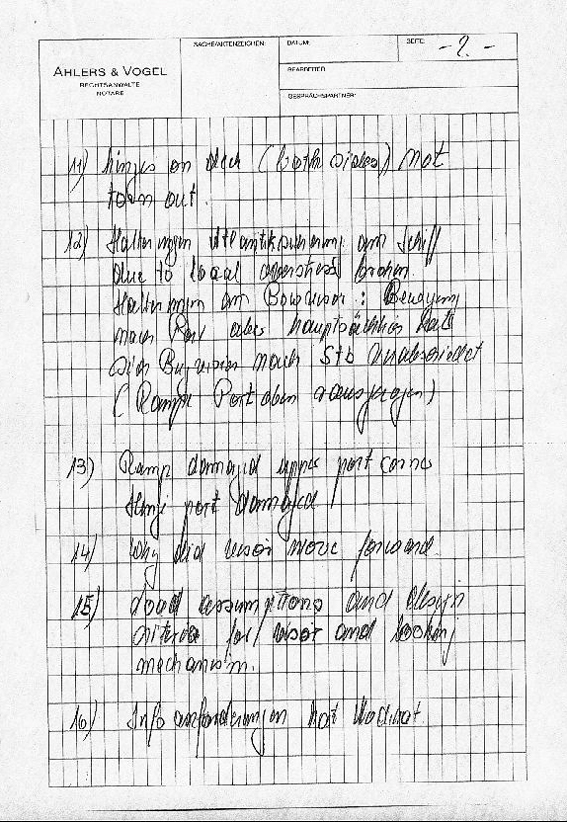 AHLERS & VOGEL
RECHTSANWÄLTE
NOTARE
SACHE/AKTENZEICHEN:
DATUM:
SEITE: -2.-
BEARBEITER:
GESPRÄCHSPARTNER:
11) hinges on deck (both sides) not
torn out.
12) Halterungen Atlantiksicherung am Schiff
due to local overstress broken.
Halterungen am Bowvisor: Bewegung
nach Port aber hauptsächlich hat
sich Bugvisor nach Stb
(Rampe Port oben)
13) Ramp damaged upper port corner
Hinge port damaged
14) Why did visor move forward.
15) Load assumptions and design
criteria for visor and locking
mechanism.
16) Info anforderungen hat